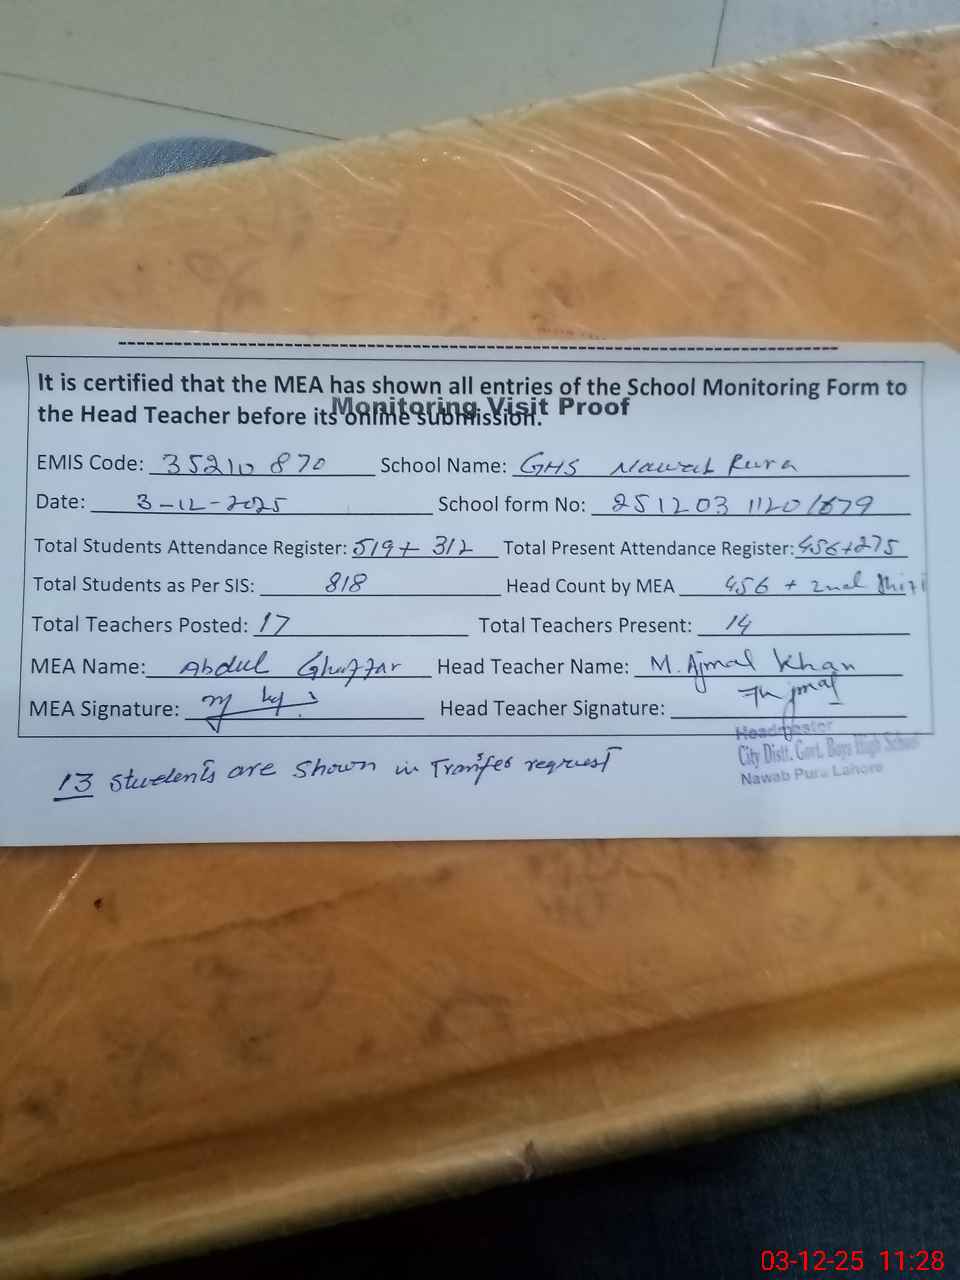 It is certified that the MEA has shown all entries of the School Monitoring Form to
the Head Teacher before its online submission.
Monitoring Visit Proof
EMIS Code: 35210870 School Name: GHS Nawab Pura
Date: 3-12-2025 School form No: 251203 1120 1679
Total Students Attendance Register: 519+ 312 Total Present Attendance Register: 456+275
Total Students as Per SIS: 818 Head Count by MEA 456 + 2nd Shift
Total Teachers Posted: 17 Total Teachers Present: 14
MEA Name: Abdul Ghaffar Head Teacher Name: M. Ajmal Khan
MEA Signature: Head Teacher Signature:
Headmaster
City Distt. Govt. Boys High School
Nawab Pura Lahore
13 Students are shown in Transfer request
03-12-25 11:28